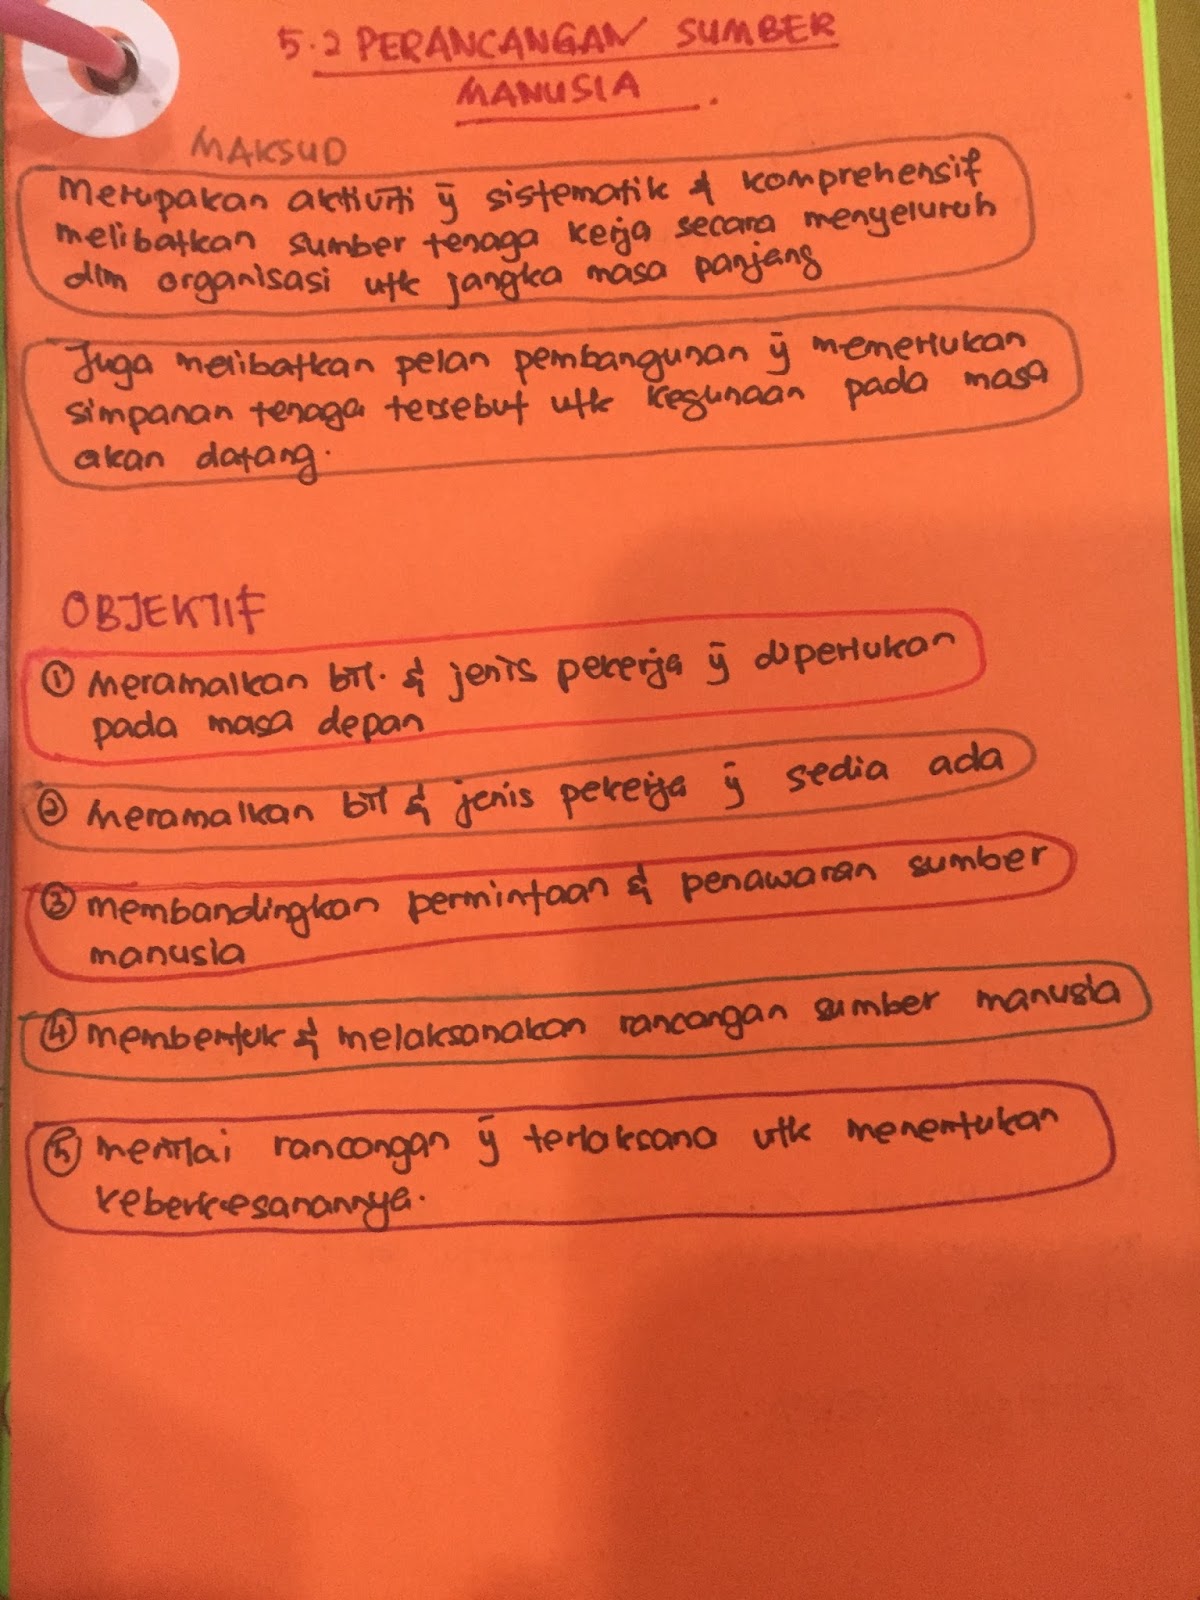 5.2 PERANCANGAN SUMBER
MANUSIA.
MAKSUD
Merupakan aktiviti ȳ sistematik & komprehensif
melibatkan sumber tenaga kerja secara menyeluruh
dlm organisasi utk jangka masa panjang
Juga melibatkan pelan pembangunan ȳ memerlukan
simpanan tenaga tersebut utk kegunaan pada masa
akan datang.
OBJEKTIF
① Meramalkan bil. & jenis pekerja ȳ diperlukan
pada masa depan
② Meramalkan bil & jenis pekerja ȳ sedia ada
③ membandingkan permintaan & penawaran sumber
manusia
④ membentuk & melaksanakan rancangan sumber manusia
⑤ menilai rancangan ȳ terlaksana utk menentukan
keberkesanannya.